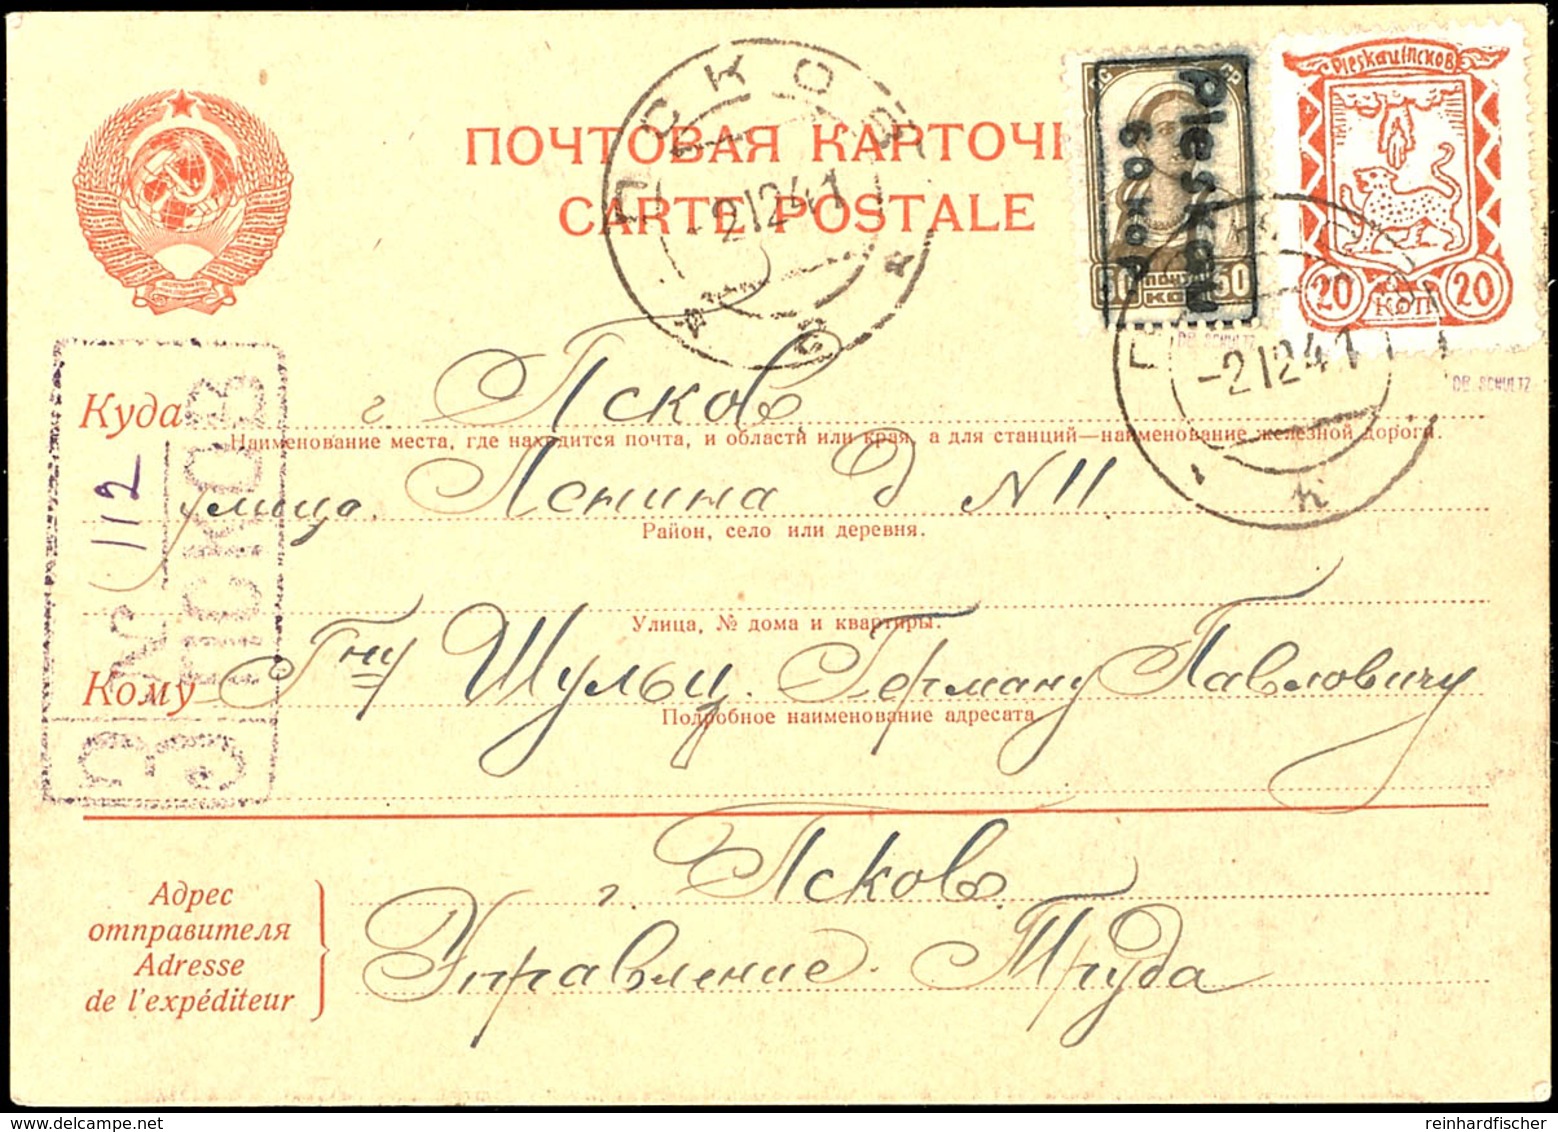 ПСКОВ
-2 12 41
ПОЧТОВАЯ КАРТОЧ
CARTE POSTALE
Pleskau
60 коп
50 ПОЧТА 50
КОП
Pleskau Псков
20 20
КОП
DR. SCHULTZ
DR. SCHULTZ
-2 12 41
Куда г. Псков
Наименование места, где находится почта, и области или края, а для станций—наименование железной дороги.
улица Ленина д N 11
Район, село или деревня.
Улица, № дома и квартиры.
Кому Гну Шульц Герману Павловичу
Подробное наименование адресата
З ПСКОВ
№ 112
Адрес
отправителя
Adresse
de l'expéditeur
г. Псков
Управление Труда
reinhardfischer